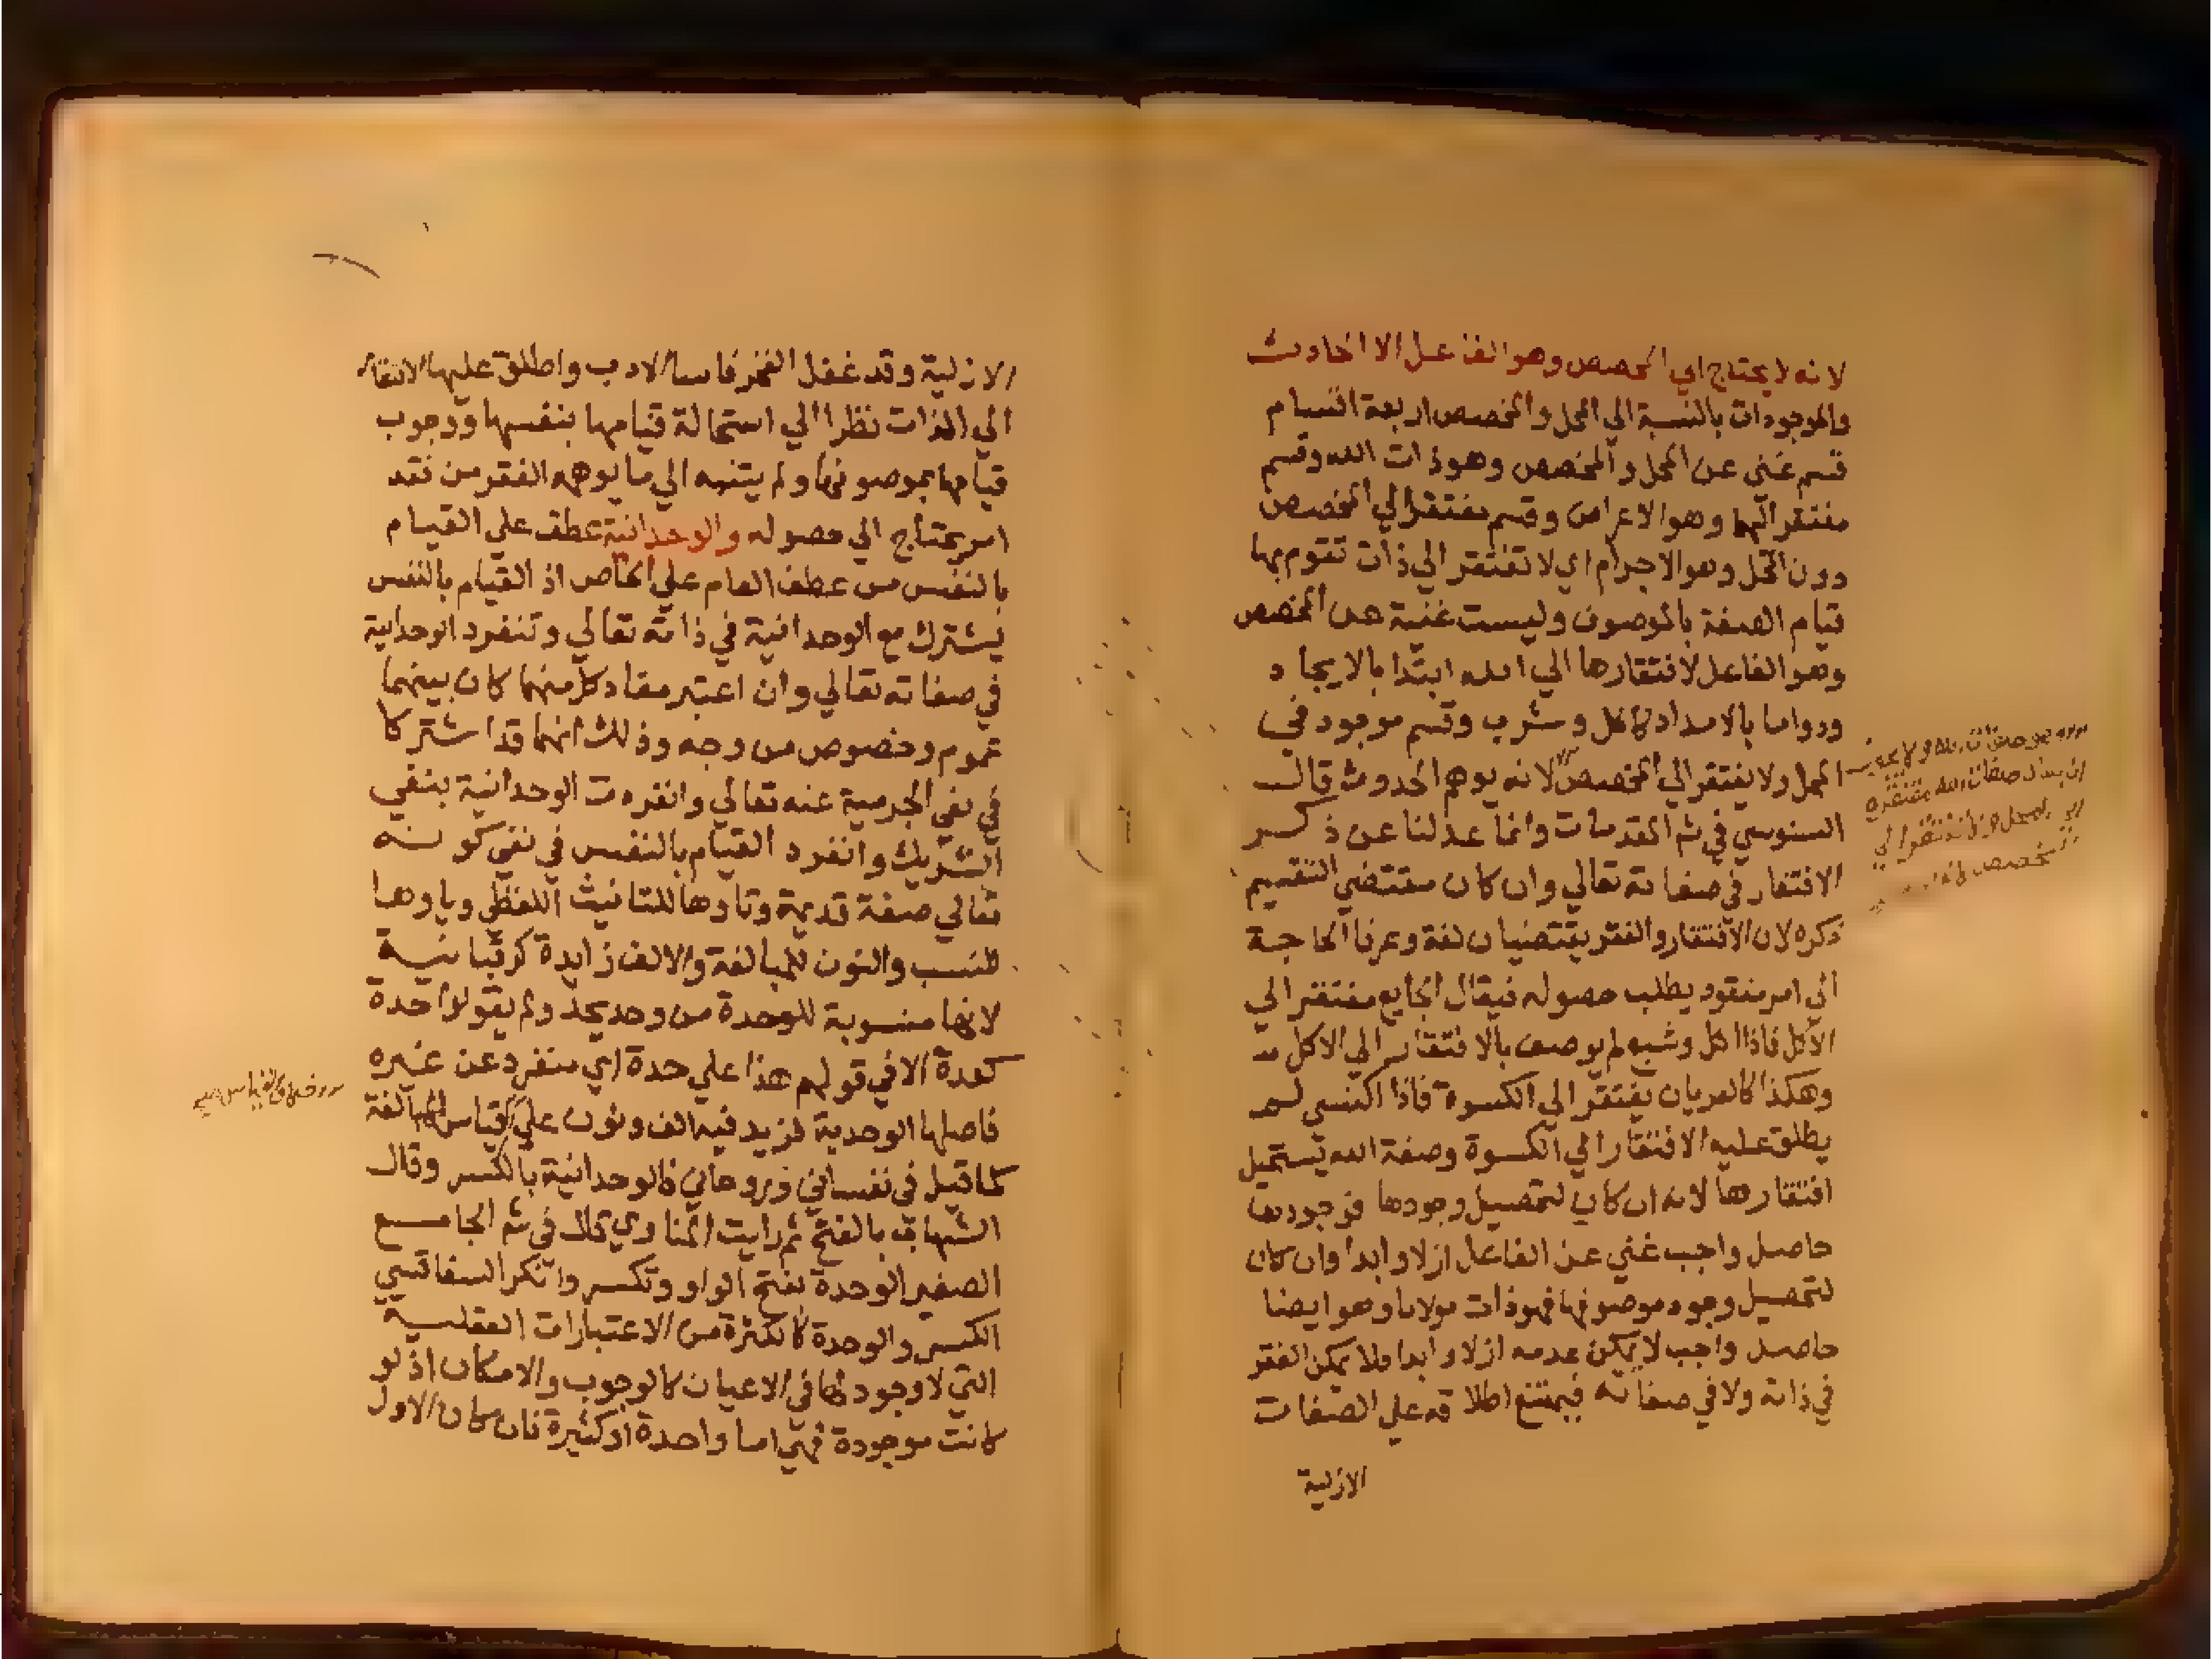 لانه لا يحتاج الي المخصص وهو الفاعل الا الحادث
والموجودات بالنسبة الي المحل والمخصص اربعة اقسام
قسم غني عن المحل والمخصص وهو ذات الله وقسم
مفتقر اليهما وهو الاعراض وقسم مفتقر الي المخصص
دون المحل وهو الاجرام اي لا تفتقر الي ذات تقوم بها
قيام الصفة بالموصوف وليست غنية عن المخصص
وهو الفاعل لافتقارها الي الله ابتدا بالايجاد
ودواما بالامداد كاكل وشرب وقسم موجود في
المحل ولا يفتقر الي المخصص لانه يوهم الحدوث قال
السنوسي في شم المقدمات وانما عدلنا عن ذكر
الافتقار في صفاته تعالي وان كان مقتضي التقسيم
ذكره لان الافتقار والفقر يقتضيان لغة وعرفا الحاجة
الي امر مفقود يطلب حصوله فيقال الجايع مفتقر الي
الاكل فاذا اكل وشبع لم يوصف بالافتقار الي الاكل
وهكذا كالعريان يفتقر الي الكسوة فاذا اكتسي لم
يطلق عليه الافتقار الي الكسوة وصفة الله يستحيل
افتقارها لانه ان كان لتحصيل وجودها فوجودها
حاصل واجب غني عن الفاعل ازلا وابدا وان كان
لتحصيل وجود موصوفها فهو ذات مولانا وهو ايضا
حاصل واجب لا يمكن عدمه ازلا وابدا فلا يمكن الفقر
في ذاته ولا في صفاته فيمتنع اطلاقه علي الصفات
الازلية
وهو صفات الله ولا يجوز
ان يقال صفات الله مفتقرة
الي المحل
الازلية وقد غفل الفخر فاسا الادب واطلق عليها الافتقار
الي الذات نظرا الي استحالة قيامها بنفسها ووجوب
قيامها بموصوفها ولم يتنبه الي ما يوهمه الفقر من فقد
امر يحتاج الي حصوله والوحدانية عطف علي القيام
بالنفس من عطف العام علي الخاص اذ القيام بالنفس
يشترك مع الوحدانية في ذاته تعالي وتنفرد الوحدانية
في صفاته تعالي وان اعتبر مفاد كل منهما كان بينهما
عموم وخصوص من وجه وذلك انهما قد اشتركا
في نفي الجرمية عنه تعالي وانفردت الوحدانية بنفي
الشريك وانفرد القيام بالنفس في نفي كونه
تعالي صفة قديمة وتاوها للتانيث اللفظي وياوها
للنسب والنون للمبالغة والالف زايدة كرقبانية
لانها منسوبة للوحدة من وحد يحد ولم يقولوا حدة
كعدة الا في قولهم هذا علي حدة اي منفرد عن غيره
فاصلها الوحدية فزيد فيه الف ونون علي قياس المبالغة
كما قيل في نفساني وروحاني فالوحدانية بالكسر وقال
الشهاب بالفتح ثم رايت المناوي قال في شم الجامع
الصغير الوحدة بفتح الواو وتكسر وانكر السفاقسي
الكسر والوحدة كالكثرة من الاعتبارات العقلية
التي لا وجود لها في الاعيان كالوجوب والامكان اذ لو
كانت موجودة فهي اما واحدة او كثيرة فان كان الاول